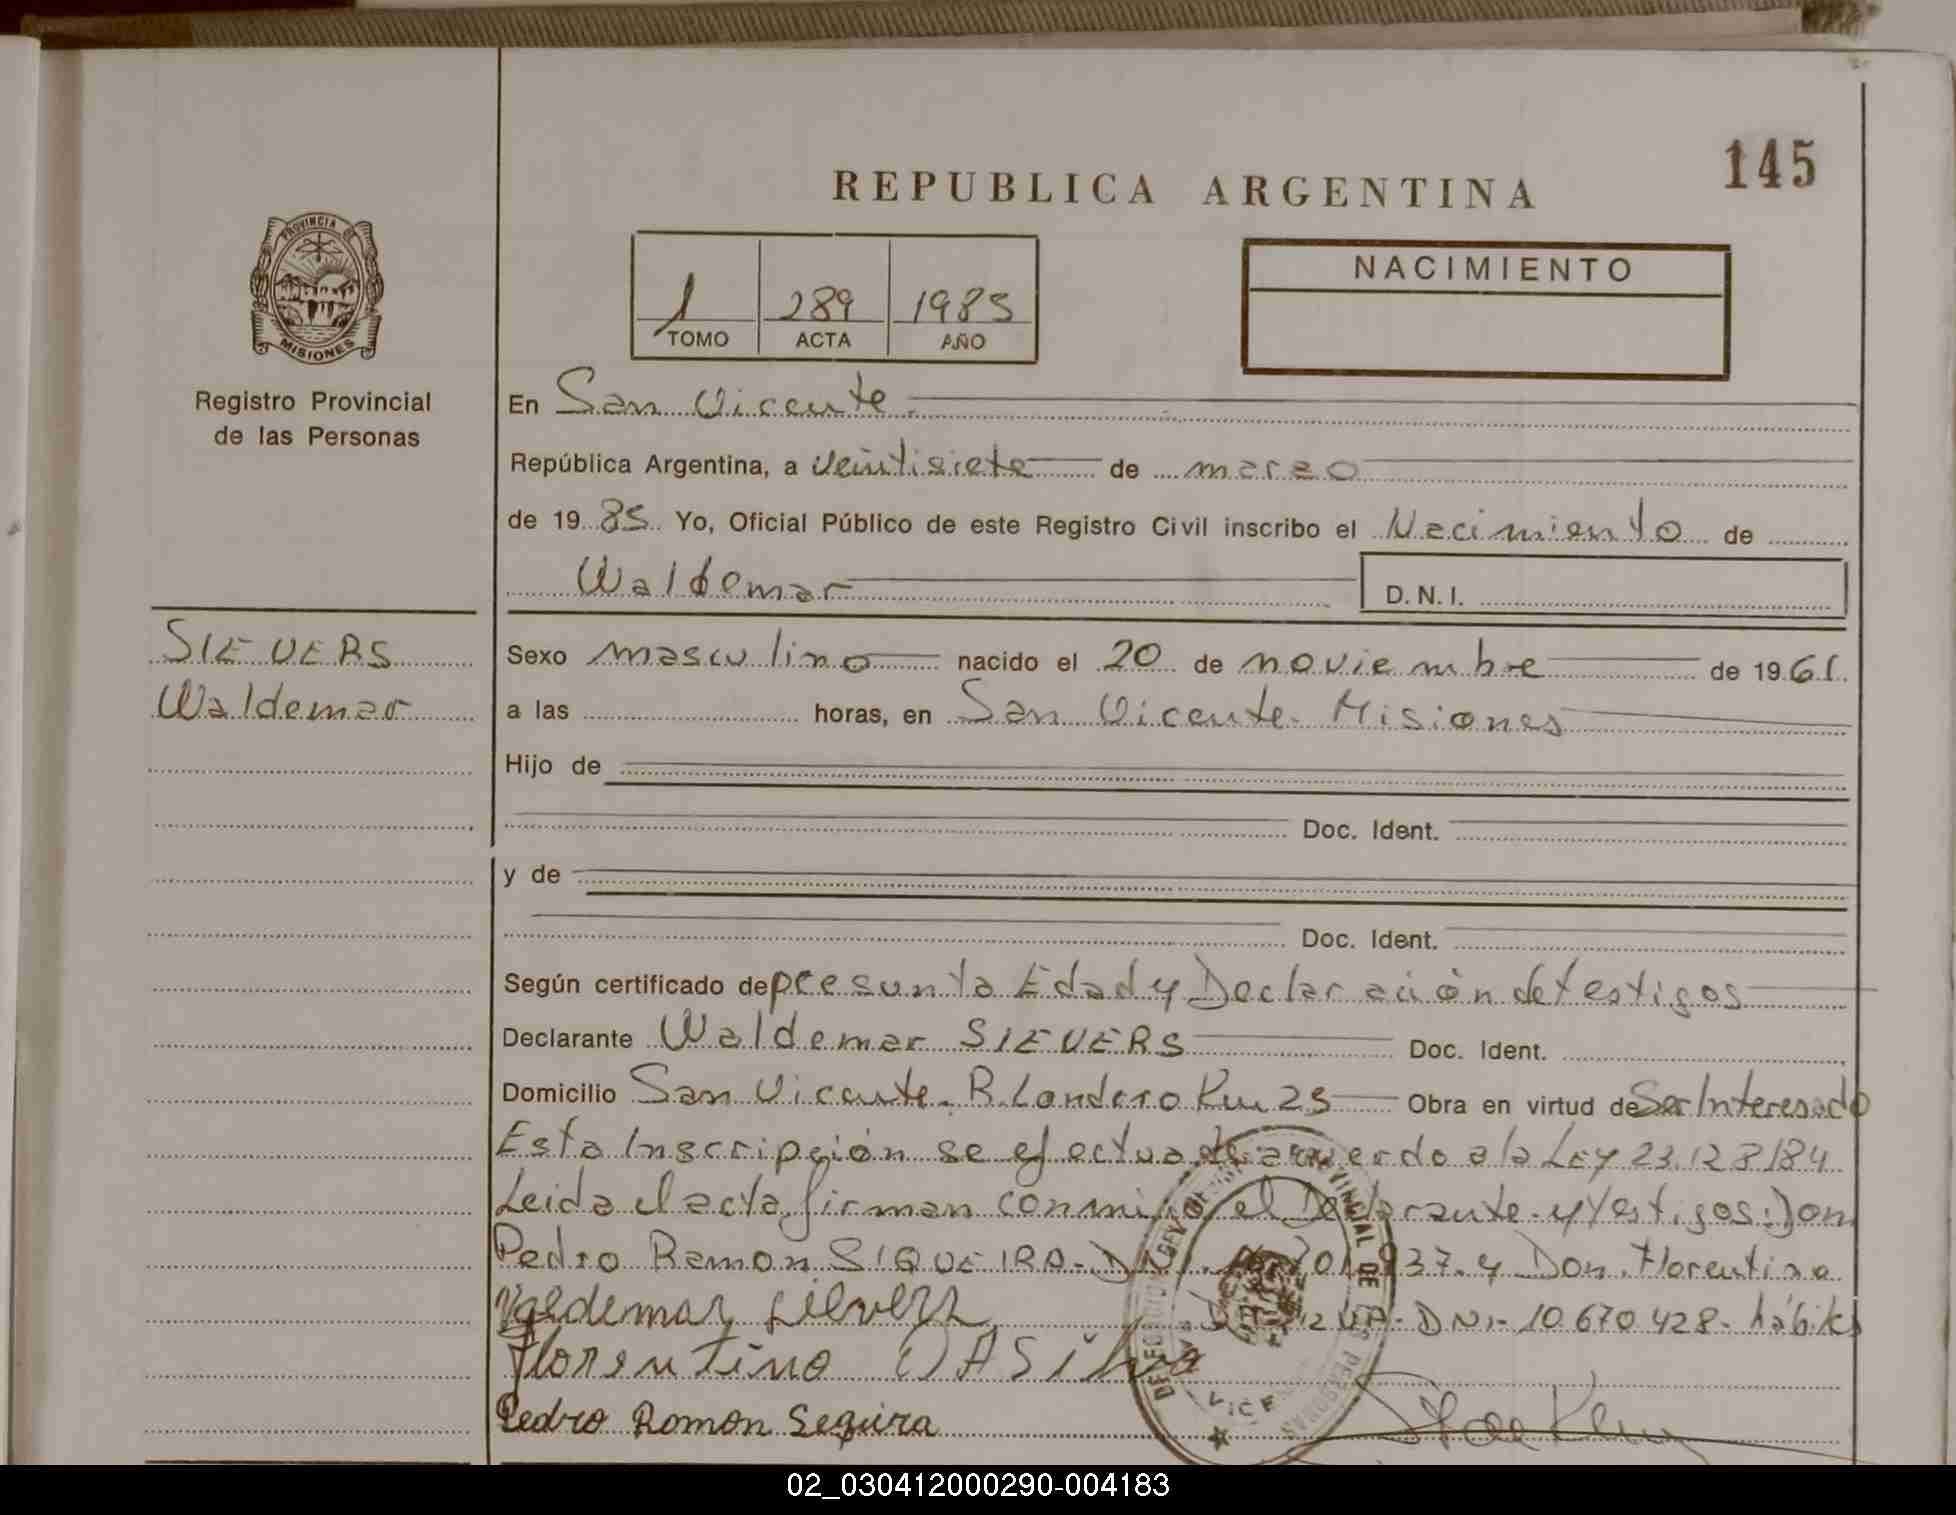 145
REPUBLICA ARGENTINA
PROVINCIA DE
MISIONES
Registro Provincial
de las Personas
1 289 1985
TOMO ACTA AÑO
NACIMIENTO
En San Vicente
República Argentina, a veintisiete de marzo
de 1985 Yo, Oficial Público de este Registro Civil inscribo el Nacimiento de
Waldemar D.N.I.
SIEVERS
Waldemar
Sexo masculino nacido el 20 de noviembre de 1961.
a las horas, en San Vicente- Misiones
Hijo de
Doc. Ident.
y de
Doc. Ident.
Según certificado de presunta Edad y Declaración de testigos
Declarante Waldemar SIEVERS Doc. Ident.
Domicilio San Vicente- B. Londero Km 25 Obra en virtud de Ser Interesado
Esta Inscripción se efectua de acuerdo a la LEY 23.128/84
Leida el acta firman conmigo el Declarante-y Testigos: Don
Pedro Ramon SIQUEIRA- DNI. y Don. Florentino
DNI- 10.670.428- hábiles
Valdemar Sievers
Florentino DA Silva
Pedro Romon Seqúira
02_030412000290-004183